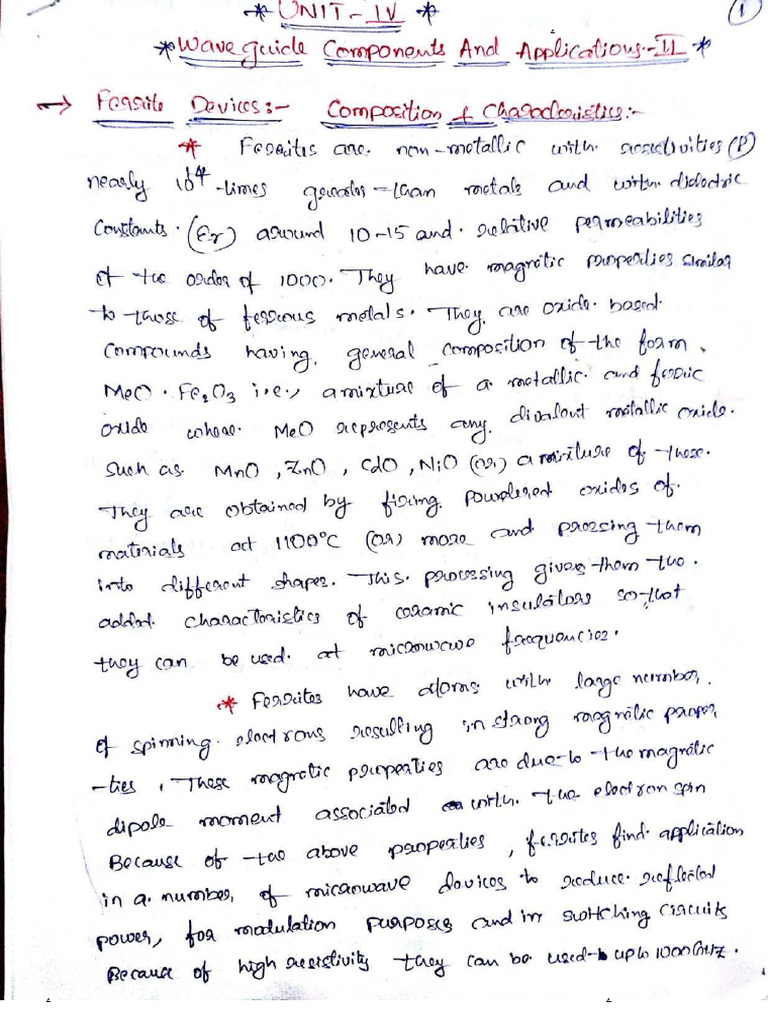 * UNIT-IV * 1
* Waveguide Components And Applications-II *
→ Ferrite Devices:- Composition & Characteristics:-
* Ferrites are non-metallic with resistivities (ρ)
nearly 10^14 -times greater than metals and with dielectric
Constants (εr) around 10-15 and relative permeabilities
of the order of 1000. They have magnetic properties similar
to those of ferrous metals. They are oxide based
compounds having general composition of the form
MeO . Fe2O3 i.e., a mixture of a metallic and ferric
oxide where MeO represents any divalent metallic oxide.
Such as MnO , ZnO , CdO , NiO (or) a mixture of these.
They are obtained by firing powdered oxides of
materials at 1100°C (or) more and pressing them
into different shapes. This processing gives them the
added characteristics of ceramic insulators so that
they can be used at microwave frequencies.
* Ferrites have atoms with large number
of spinning electrons resulting in strong magnetic proper
-ties . These magnetic properties are due to the magnetic
dipole moment associated with the electron spin
Because of the above properties , ferrites find application
in a number of microwave devices to reduce reflected
power, for modulation purposes and in switching circuits
Because of high resistivity they can be used upto 100 GHz .